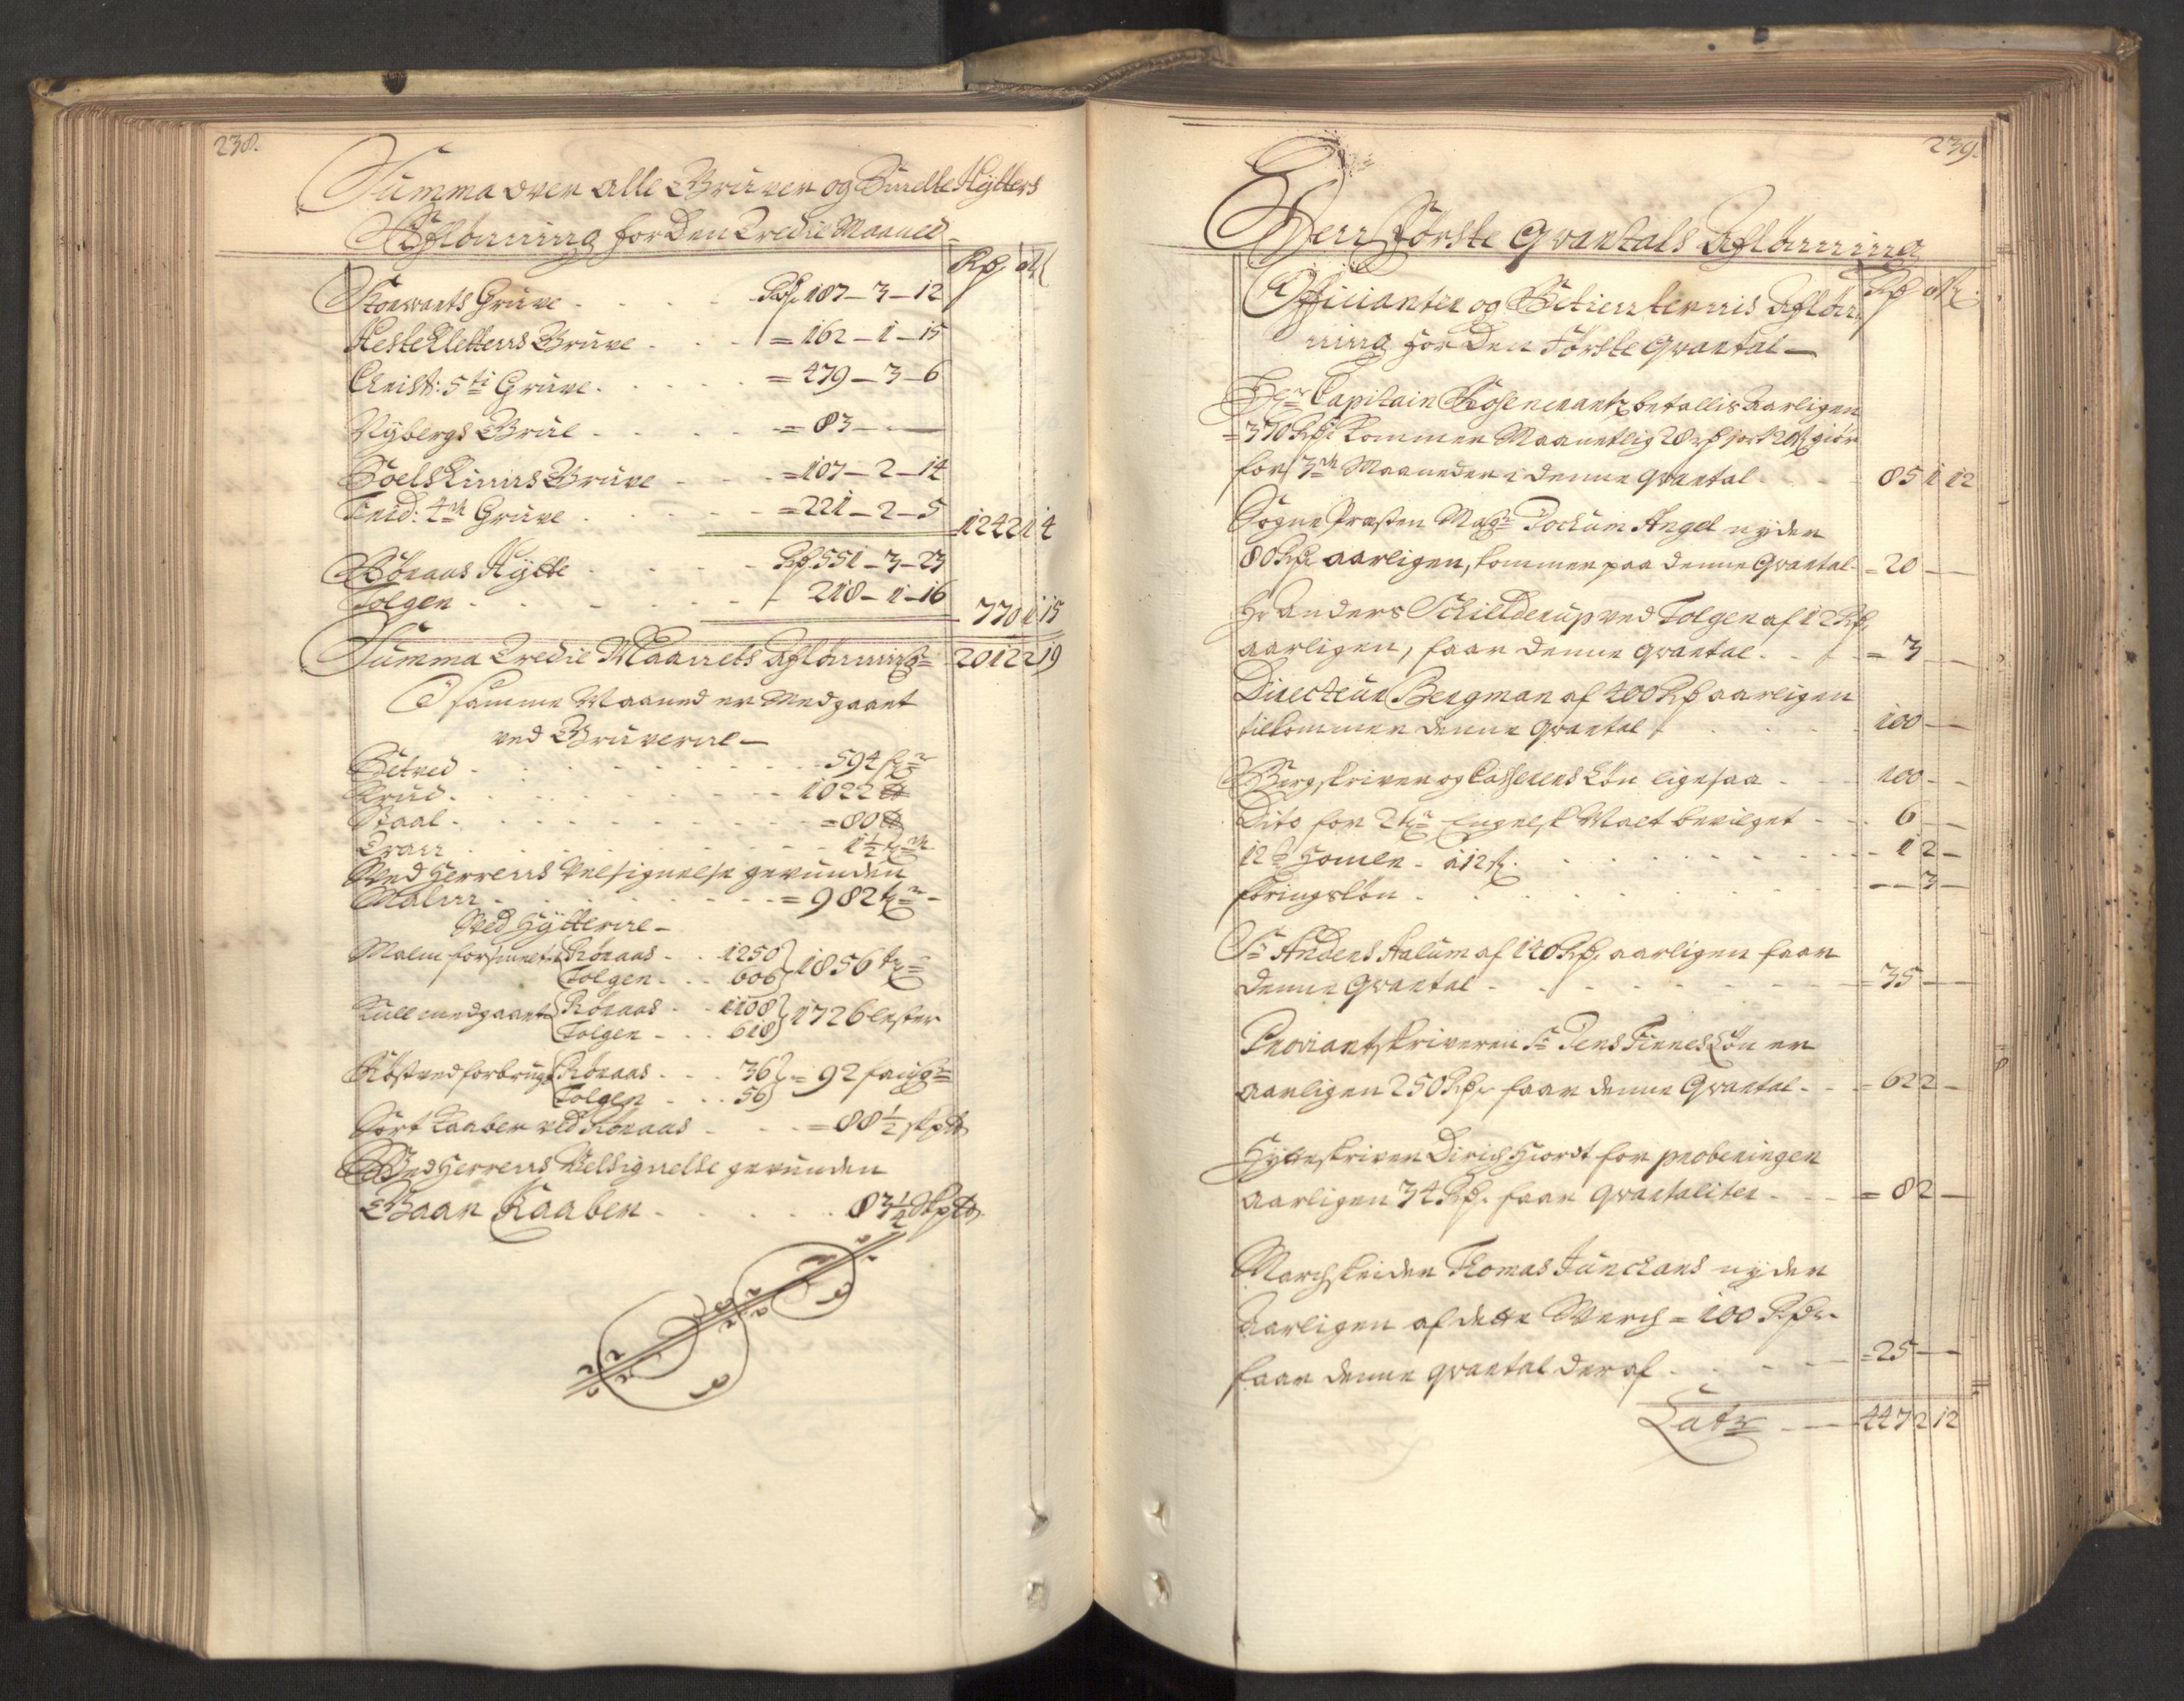 238.
Summa over alle Gruver og Smelte Hytters
Afløning for den Tredie Maaned
Rdr. ort
Storwarts Gruve . . . . . Rdr. 187 – 3 – 12
Hestekletters Gruve . . . = 162 – 1 – 15
Christ: 5ti Gruve . . . . . = 479 – 3 – 6
Nybergs Gruve . . . . . = 83 – –
Soelskins Gruve . . . . = 107 – 2 – 14
Frid: 4de Gruve . . . . . = 221 – 2 – 5
1242 1 4
Røraas Hytte . . . . . Rdr. 551 – 3 – 23
Tolgen . . . . . . 218 – 1 – 16
770 1 15
Summa Tredie Maanets Afløning = 2012 2 19
I samme Maaned er Medgaaet
ved Gruverne –
Setved . . . . . . . . 594 f
Krud . . . . . . . . 1022 ℔
Staal . . . . . . . . = 80 ℔
Tran . . . . . . . . 1½ t
Ved Herrens Velsignelse gevunden
Malm . . . . . . . = 982 tr –
Ved Hytterne –
Malm forsmelt Røraas . . 1250
Tolgen . . . 606 1856 tr
Kull medgaaet Røraas . . 1108
Tolgen . . . 618 1726 lester
Røstved forbrugt Røraas . . . 36
Tolgen . . . 56 = 92 faufn
Sort Kaaber ved Røraas . . . = 88½ skp℔
Ved Herrens Velsignelse gevunden
Gaar Kaaber . . . . . 83¼ Skp℔
239.
Herr Første Qvartals Afløning
Rdr ort
Officianter og Betienternis Afløn-
ning for den Første Qvartal –
Hr Capitain Rosencrantz betallis Aarligen
= 370 Rdr kommer Maanetlig 28 rdr 1 ort 20 s giør
for 3de Maaneder i denne Qvartal . . . 85 1 12
Sogne Præsten Magr Jochum Angel nyder
80 Rdr aarligen, kommer paa denne Qvartal = 20 –
Hr Anders Schielderup ved Tolgen af 12 Rdr
aarligen, faar denne qvartal . . . = 3 –
Directeur Bergman af 400 Rdr aarligen
tilkommer denne qvartal . . . . 100 –
Bergskriver og Casserens Løn ligesaa . . . 100 –
Dito for 2 tr Engelsk Malt bevilget . . . 6 –
12 ℔ Homle à 12 s . . . . . . 1 2 –
føringsløn . . . . . . – 3 –
Sr Anders Aalum af 140 Rdr. aarligen faar
denne Qvartal . . . . . . = 35 –
Proviantskriveren Sr Jens Finnes Løn er
aarligen 250 Rdr faar denne Qvartal . . = 62 2 –
Hytteskriver Dirich Hiordt for proberingen
aarligen 34 Rdr. faar qvartaliter . . . = 8 2 –
Marchskeider Thomas Junchans nyder
Aarligen af dette Werch = 100 Rdr
faar denne qvartal deraf . . . . = 25 –
Latr – 447 2 12